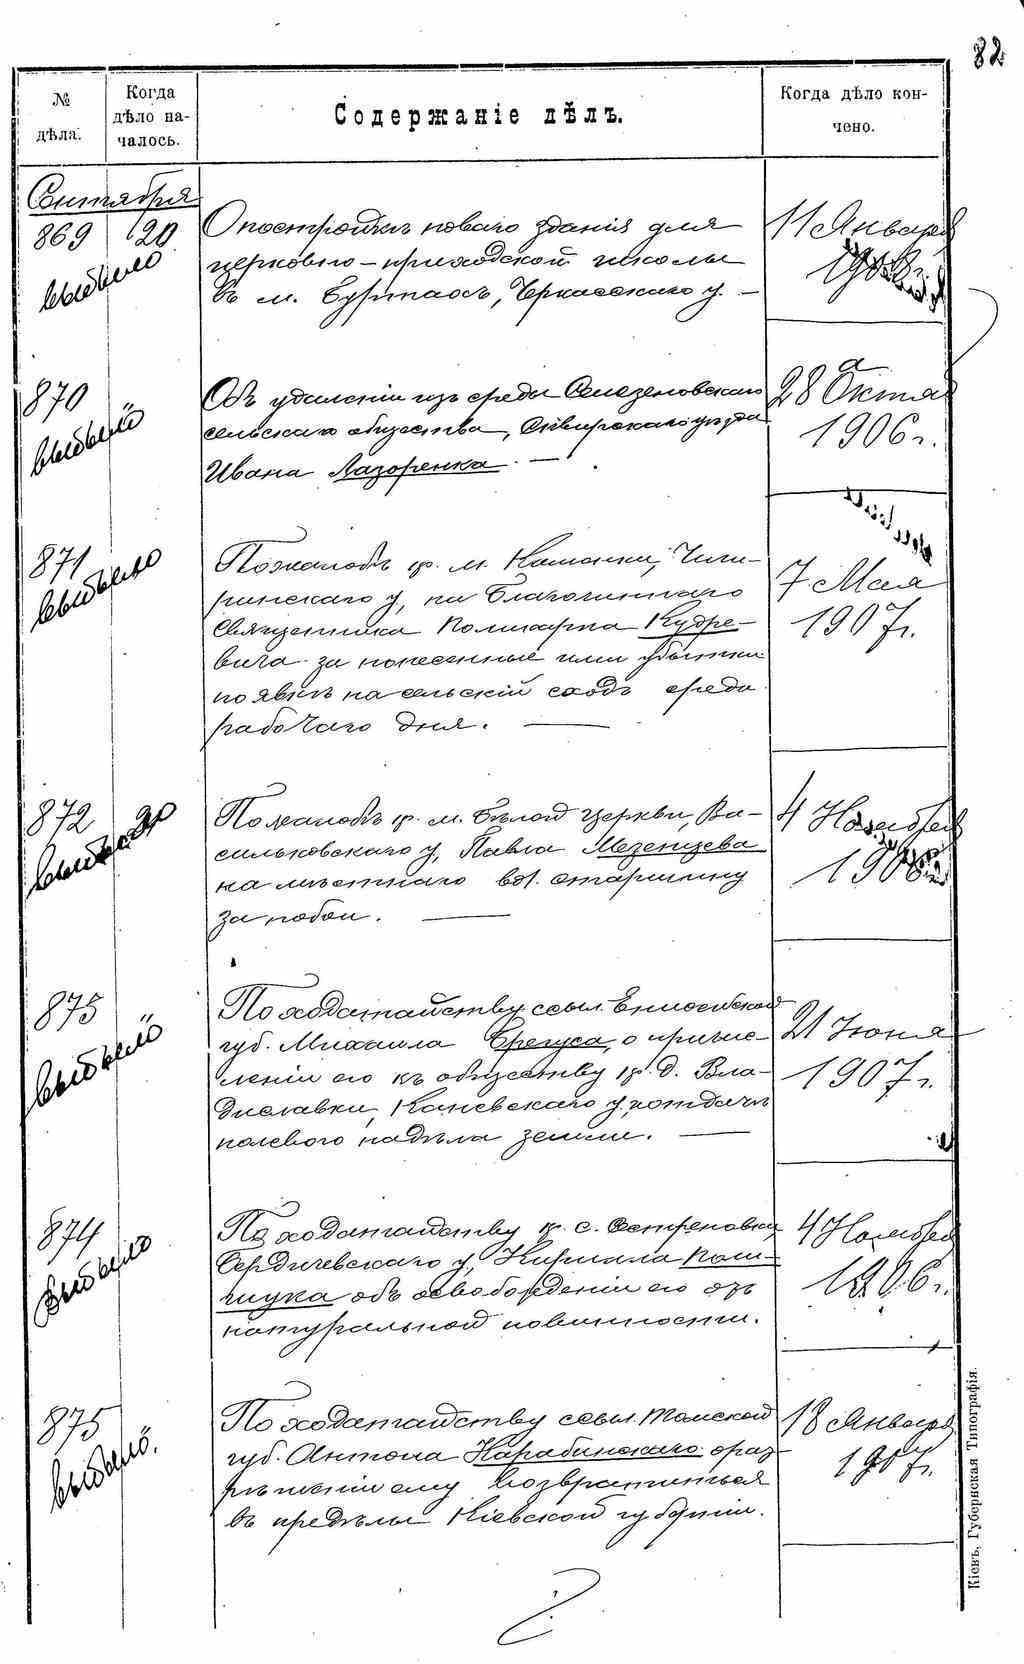 82
№ дѣла.
Когда дѣло началось.
Содержаніе дѣлъ.
Когда дѣло кончено.
Сентября
869
20
выбыло
О постройкѣ новаго зданія для
церковно-приходской школы
въ м. Черкасскаго у. —
11 Января
1908 г.
870
"
выбыло
Объ удаленіи изъ среды Селезеновскаго
сельскаго общества, Сквирскаго уѣзда
Ивана Лазоренка. —
28 Октяб
1906 г.
871
выбыло
По жалобѣ кр. м. Каменки, Чиги-
ринскаго у, на Благочиннаго
Священника Поликарпа Кудре-
вича за понесенные ими убытки
по явкѣ на сельскій сходъ среди
рабочаго дня. —
7 Мая
1907 г.
872
20
выбыло
По жалобѣ кр. м. Бѣлой Церкви, Ва-
сильковскаго у, Павла Мезенцева
на мѣстнаго вол. старшину
за побои. —
4 Ноября
1906 г.
873
"
выбыло
По ходатайству ссыл. Енисейской
губ. Михаила о причис-
леніи его къ обществу кр. д. Вла-
диславки, Каневскаго у, и отдачѣ
полевого надѣла земли. —
21 Іюня
1907 г.
874
выбыло
По ходатайству кр. с.
Бердичевскаго у, Кирилла Поли-
щука объ освобожденіи его отъ
натуральной повинности.
4 Ноября
1906 г.
875
"
выбыло
По ходатайству ссыл. Томской
губ. Антона Карабинскаго о раз-
рѣшеніи ему возвратиться
въ предѣлы Кіевской губерніи.
18 Января
1907 г.
Кіевъ, Губернская Типографія.